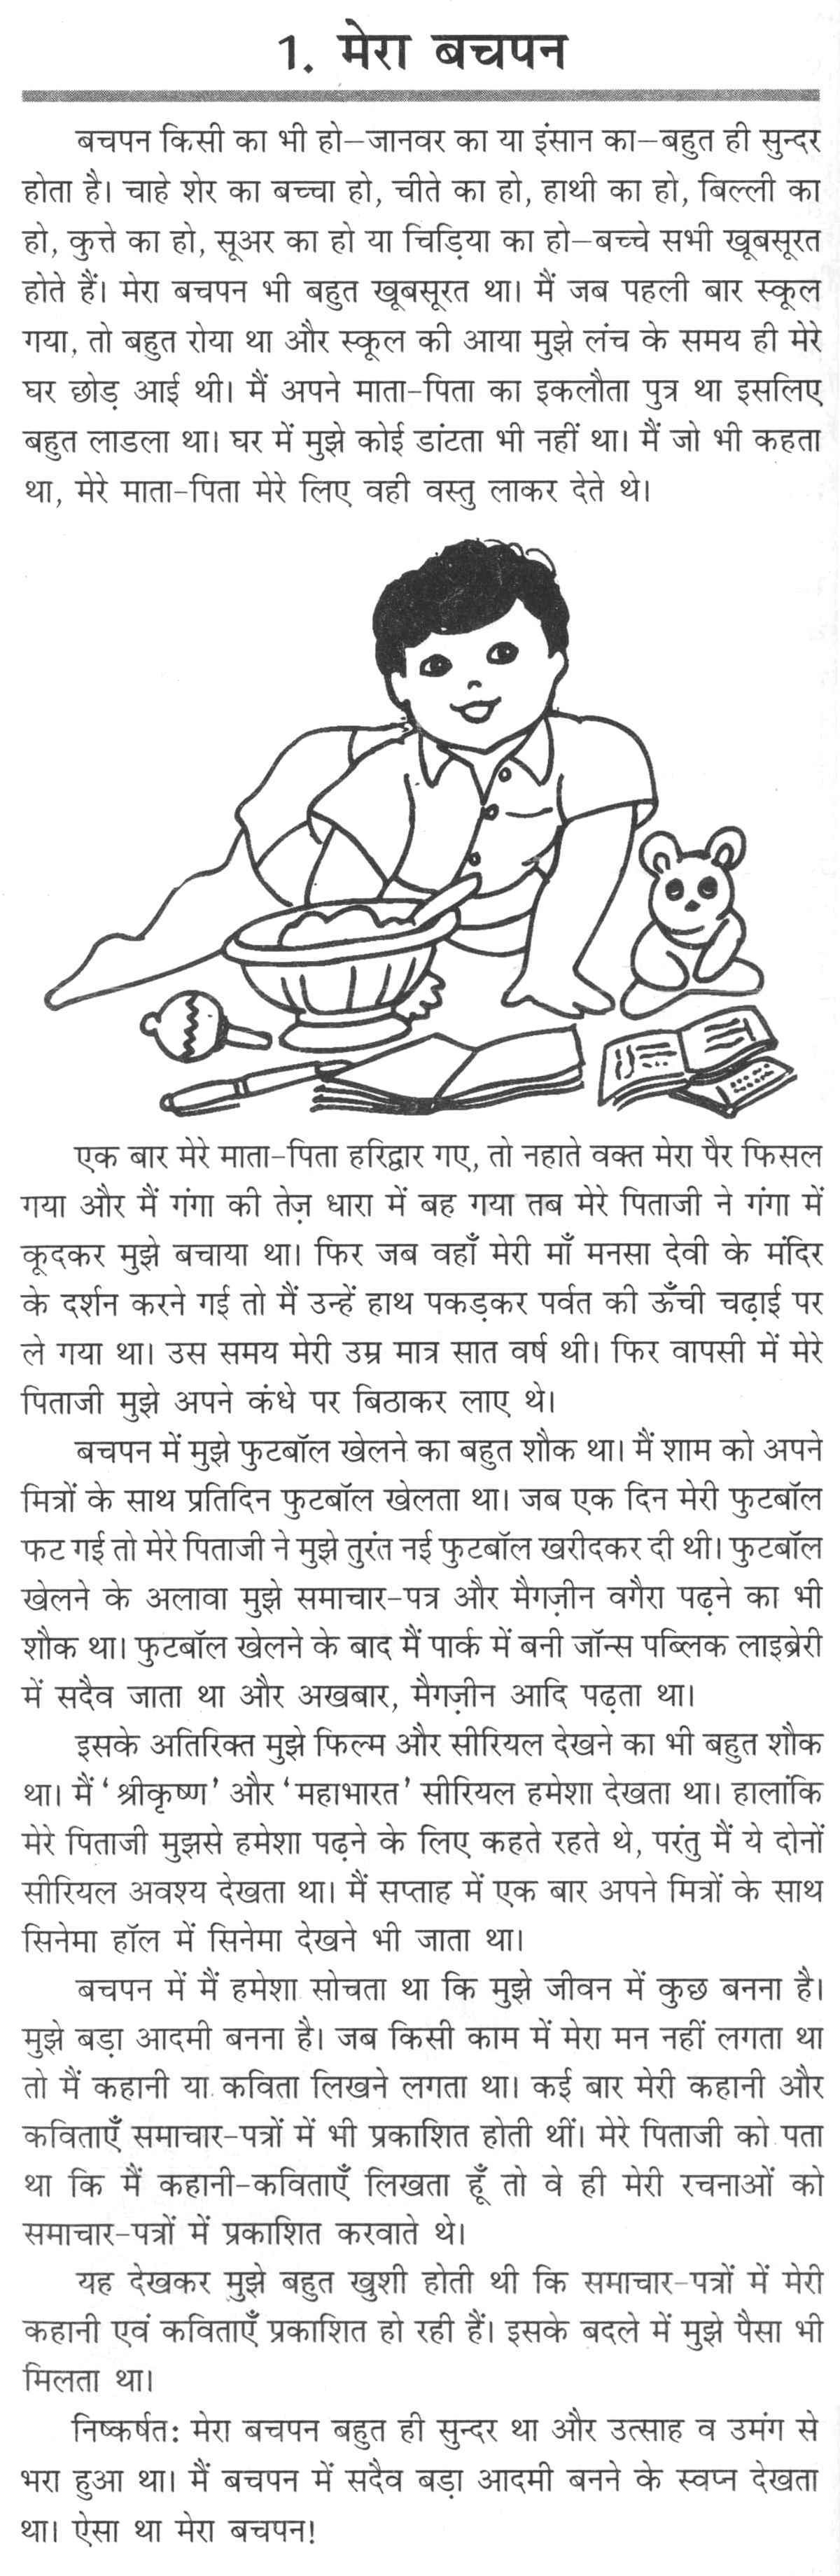 1. मेरा बचपन
बचपन किसी का भी हो–जानवर का या इंसान का–बहुत ही सुन्दर
होता है। चाहे शेर का बच्चा हो, चीते का हो, हाथी का हो, बिल्ली का
हो, कुत्ते का हो, सूअर का हो या चिड़िया का हो–बच्चे सभी खूबसूरत
होते हैं। मेरा बचपन भी बहुत खूबसूरत था। मैं जब पहली बार स्कूल
गया, तो बहुत रोया था और स्कूल की आया मुझे लंच के समय ही मेरे
घर छोड़ आई थी। मैं अपने माता-पिता का इकलौता पुत्र था इसलिए
बहुत लाडला था। घर में मुझे कोई डांटता भी नहीं था। मैं जो भी कहता
था, मेरे माता-पिता मेरे लिए वही वस्तु लाकर देते थे।
एक बार मेरे माता-पिता हरिद्वार गए, तो नहाते वक्त मेरा पैर फिसल
गया और मैं गंगा की तेज़ धारा में बह गया तब मेरे पिताजी ने गंगा में
कूदकर मुझे बचाया था। फिर जब वहाँ मेरी माँ मनसा देवी के मंदिर
के दर्शन करने गई तो मैं उन्हें हाथ पकड़कर पर्वत की ऊँची चढ़ाई पर
ले गया था। उस समय मेरी उम्र मात्र सात वर्ष थी। फिर वापसी में मेरे
पिताजी मुझे अपने कंधे पर बिठाकर लाए थे।
बचपन में मुझे फुटबॉल खेलने का बहुत शौक था। मैं शाम को अपने
मित्रों के साथ प्रतिदिन फुटबॉल खेलता था। जब एक दिन मेरी फुटबॉल
फट गई तो मेरे पिताजी ने मुझे तुरंत नई फुटबॉल खरीदकर दी थी। फुटबॉल
खेलने के अलावा मुझे समाचार-पत्र और मैगज़ीन वगैरा पढ़ने का भी
शौक था। फुटबॉल खेलने के बाद मैं पार्क में बनी जॉन्स पब्लिक लाइब्रेरी
में सदैव जाता था और अखबार, मैगज़ीन आदि पढ़ता था।
इसके अतिरिक्त मुझे फिल्म और सीरियल देखने का भी बहुत शौक
था। मैं ‘श्रीकृष्ण’ और ‘महाभारत’ सीरियल हमेशा देखता था। हालांकि
मेरे पिताजी मुझसे हमेशा पढ़ने के लिए कहते रहते थे, परंतु मैं ये दोनों
सीरियल अवश्य देखता था। मैं सप्ताह में एक बार अपने मित्रों के साथ
सिनेमा हॉल में सिनेमा देखने भी जाता था।
बचपन में मैं हमेशा सोचता था कि मुझे जीवन में कुछ बनना है।
मुझे बड़ा आदमी बनना है। जब किसी काम में मेरा मन नहीं लगता था
तो मैं कहानी या कविता लिखने लगता था। कई बार मेरी कहानी और
कविताएँ समाचार-पत्रों में भी प्रकाशित होती थीं। मेरे पिताजी को पता
था कि मैं कहानी-कविताएँ लिखता हूँ तो वे ही मेरी रचनाओं को
समाचार-पत्रों में प्रकाशित करवाते थे।
यह देखकर मुझे बहुत खुशी होती थी कि समाचार-पत्रों में मेरी
कहानी एवं कविताएँ प्रकाशित हो रही हैं। इसके बदले में मुझे पैसा भी
मिलता था।
निष्कर्षत: मेरा बचपन बहुत ही सुन्दर था और उत्साह व उमंग से
भरा हुआ था। मैं बचपन में सदैव बड़ा आदमी बनने के स्वप्न देखता
था। ऐसा था मेरा बचपन!